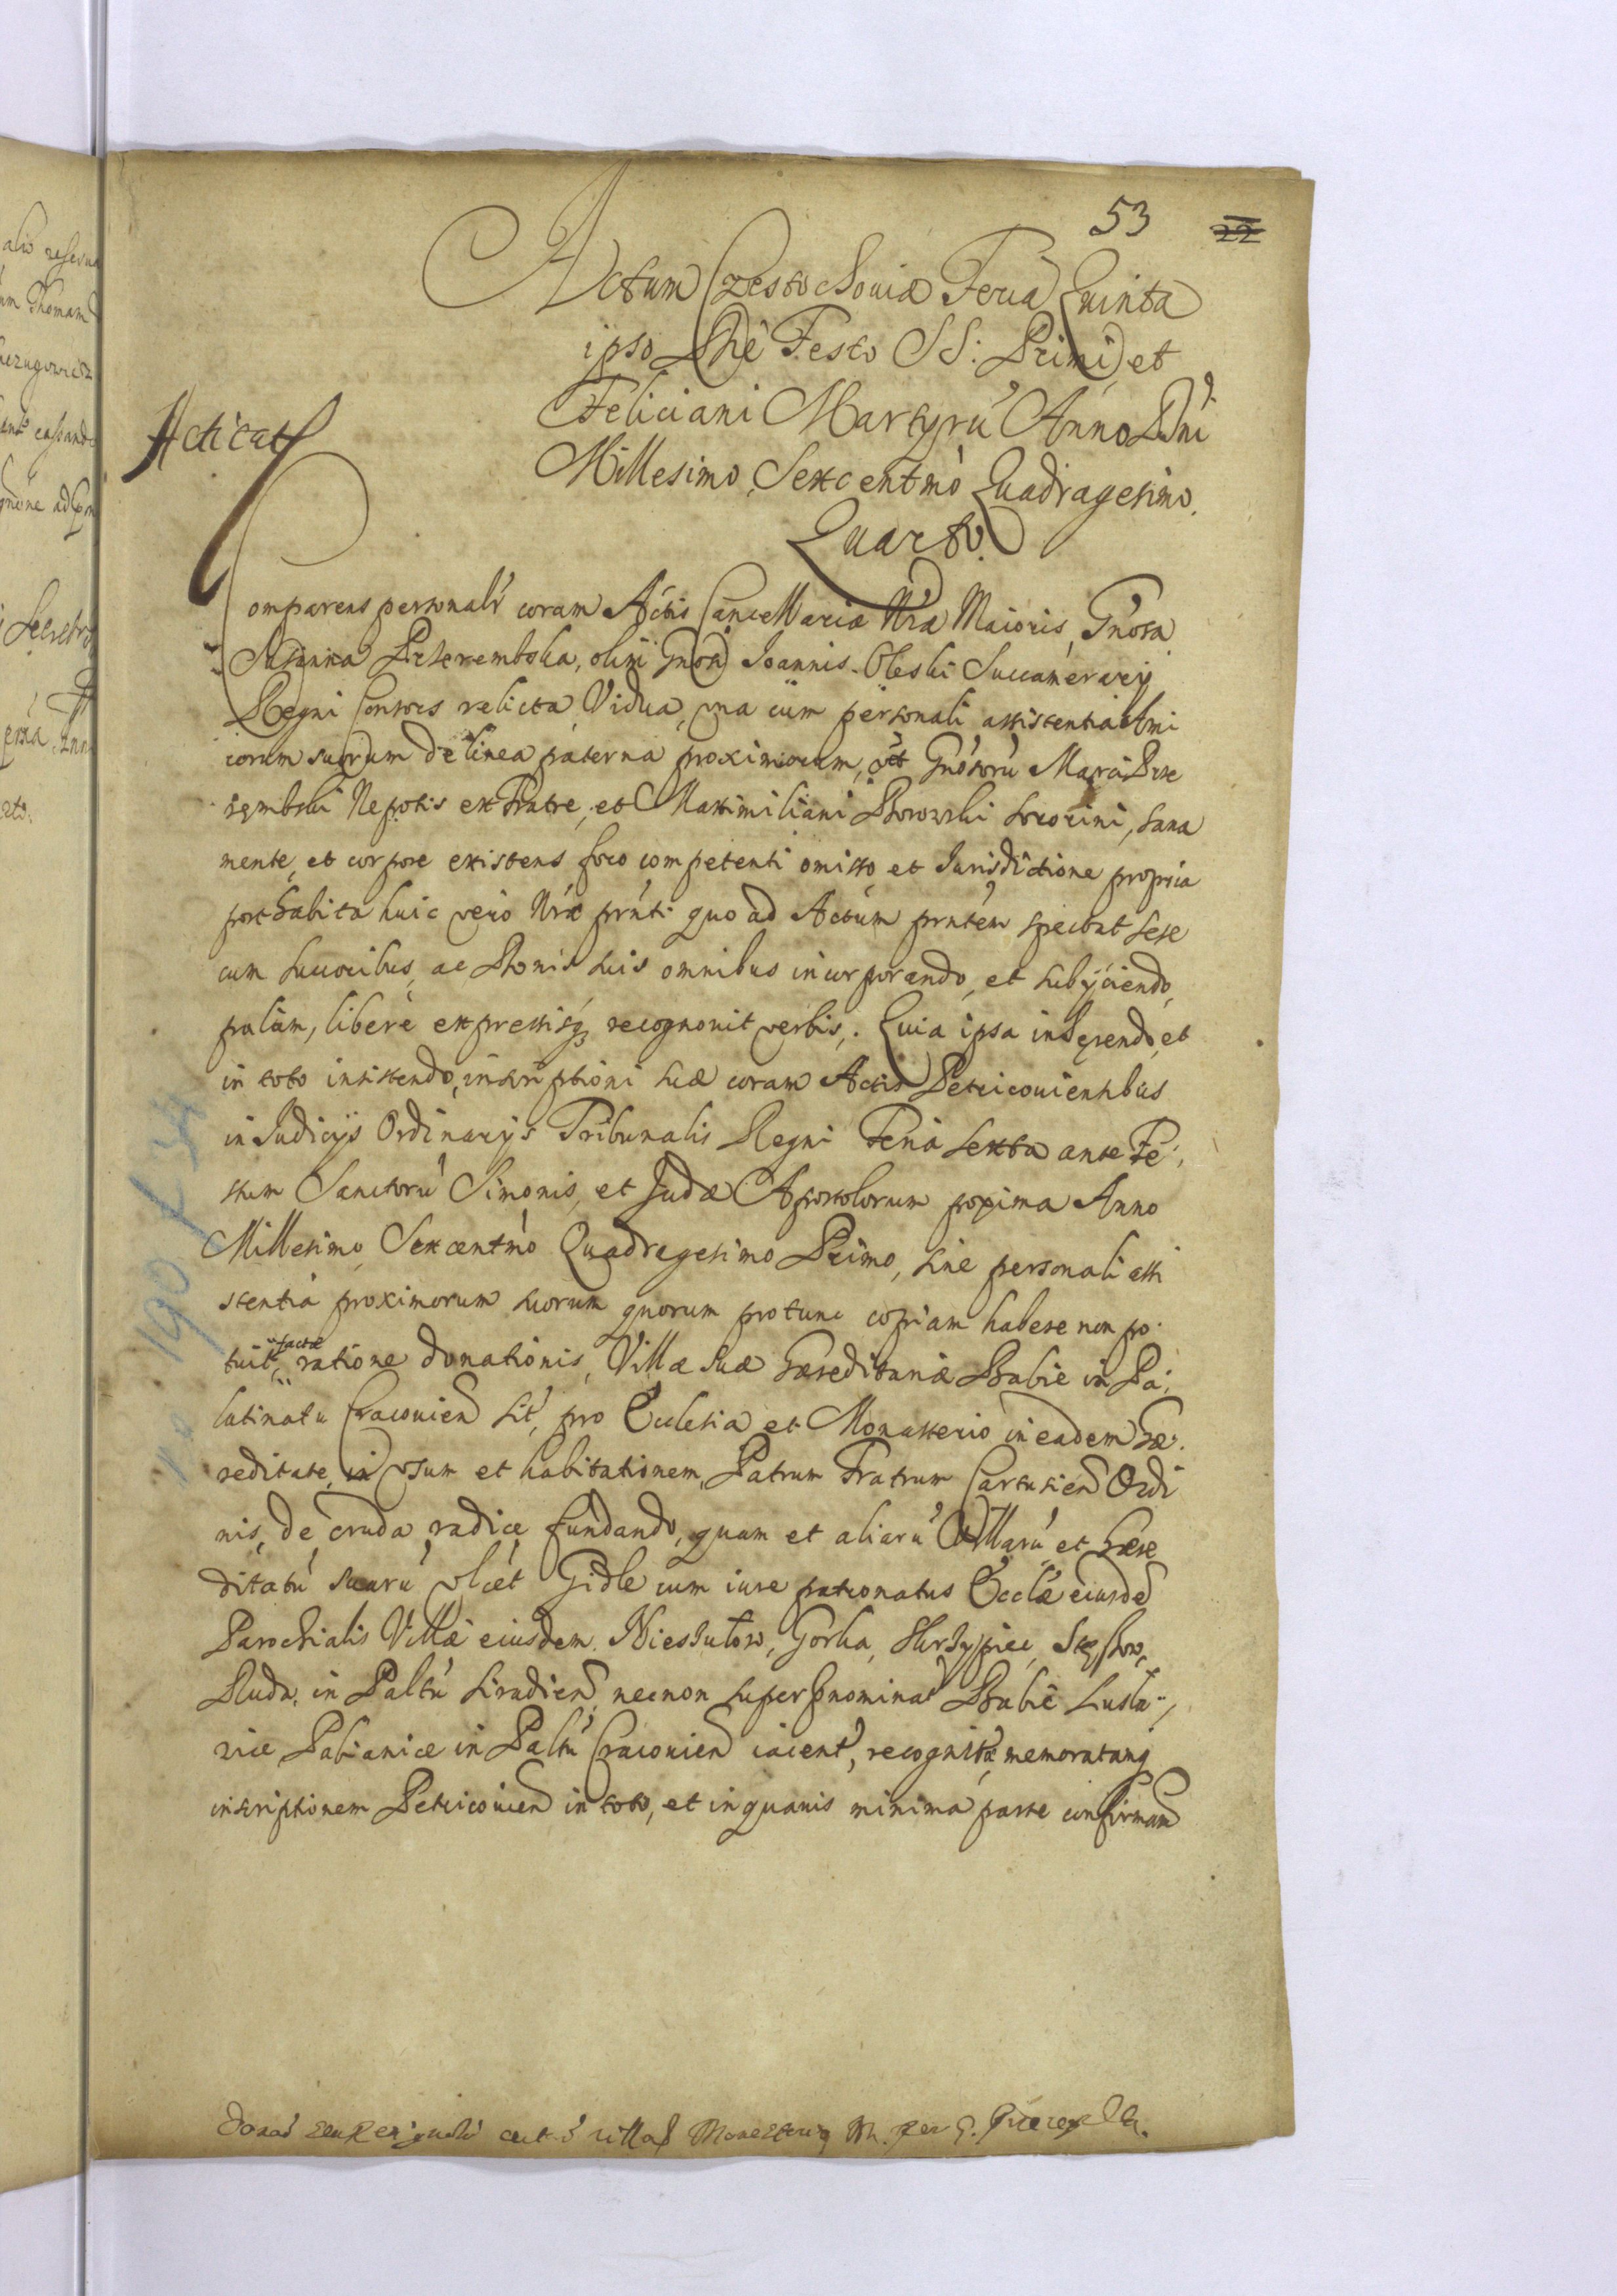 53 22
Actum Czestochouiæ Feria Quinta
ipso Die Festo SS: Primi et
Feliciani Martyrú Anno Dni
Millesimo Sexcentmò Quadragesimo
Quarto.
Acticatᷤ
Comparens personalr coram Actis Cancellariæ Nræ Maioris, Gnosa
Susanna Przerembska, olim Gnosi Ioannis Oleski Succamerarij
Regni Consors relicta Vidua, una cum personali assistentia Ami
corum suorum de linea paterna proximiorum, vt Gnosorú Marci Prze
rembski Nepotis ex Fratre, et Maximiliani Sororini, sana
mente, et corpore existens foro competenti omisso et Iurisdictione propria
posthabita huic vero Nræ prnti quo ad Actum prntem spectat sese
cum successoribus, ac Bonis suis omnibus incorporando, et subijciendo,
palam, libere expressisq recognouit verbis. Quia ipsa inhærendo, et
in toto insistendo, inscriptioni suæ coram Actis Petricouiensibus
in Iudicijs Ordinarijs Tribunalis Regni Feria sexta ante Fe
stum Sanctorú Simonis, et Judæ Apostolorum proxima Anno
Millesimo Sexcentmò Quadragesimo Primo, sine personali assi
stentia proximorum suorum quorum protunc copiam habere non po
tuit, factæ ratione donationis, Villæ suæ hæreditariæ Babie in Pa
latinatu Cracouien sit, pro Ecclesia et Monasterio in eadem hæ
reditate, in vsum et habitationem, Patrum Fratrum Cartusien Ordi
nis, de cruda radice fundando, quam et aliarú Villarú et hære
ditatú suarú vlcet Gidle cum iure patronatus Ecclæ eiusde
Parochialis Villæ eiusdem. Niesulow, Gorka, Skrzypiec, Stęszow,
Ruda, in Paltú Siradien necnon super Babie Susla
rice Pabianice in Paltú Cracouien iacent, recognitæ, memoratamq
inscriptionem Petricouien in toto, et in quauis minima parte confirmand
190 f 34
villas Monasterio per G.